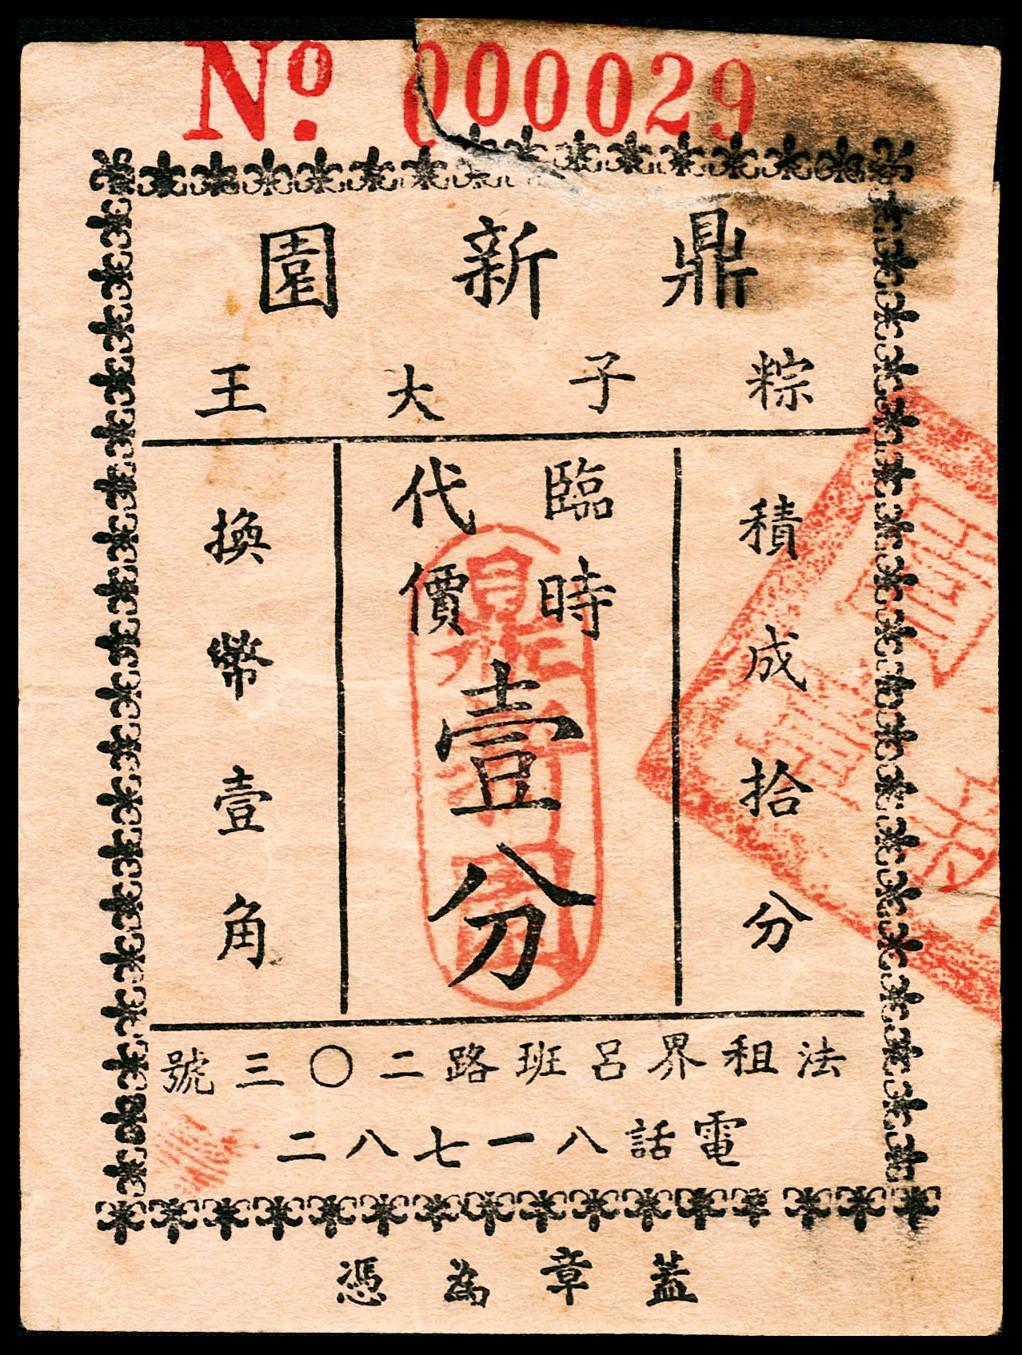 No. 000029
鼎新園
粽子大王
積成拾分
臨時
代價
壹分
換幣壹角
法租界呂班路二〇三號
電話八一七八二
蓋章為憑
鼎新園